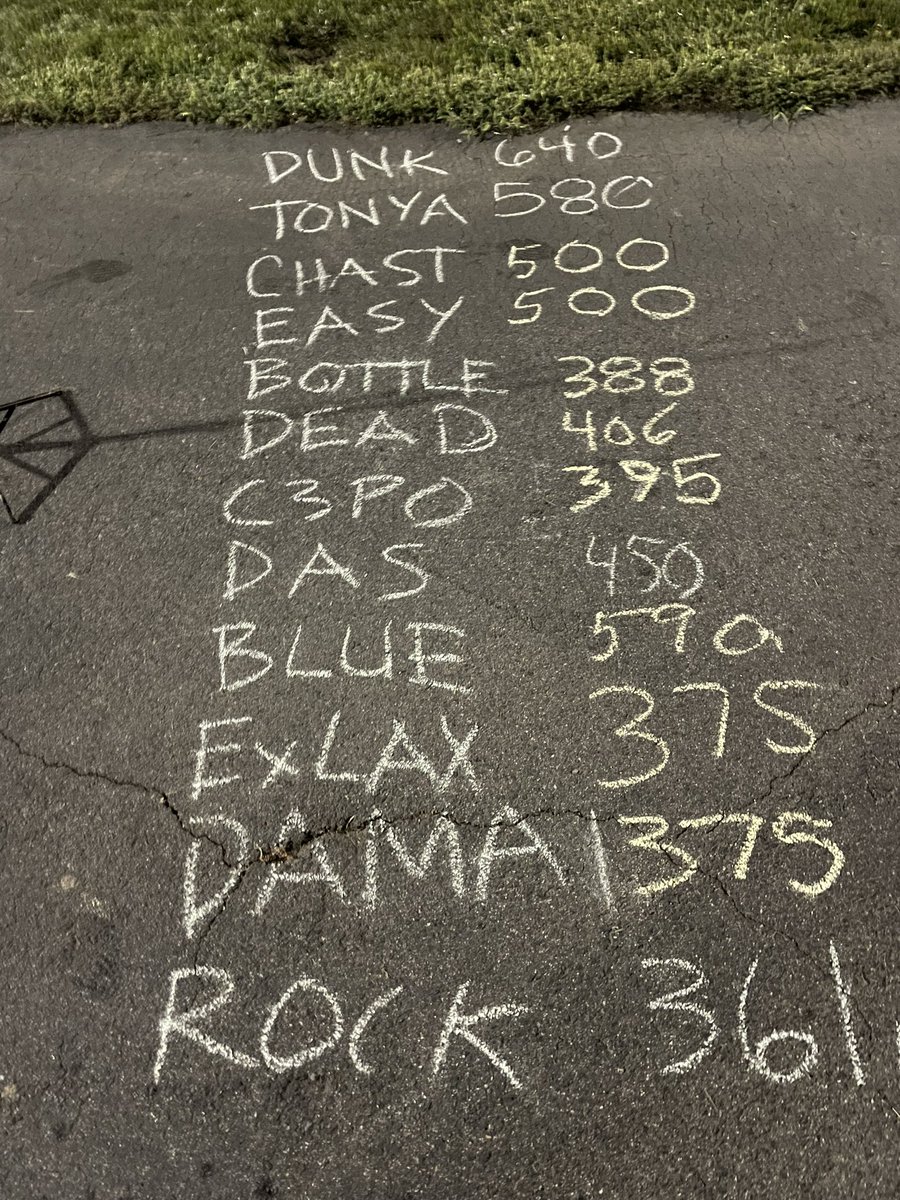 DUNK 640
TONYA 580
CHAST 500
EASY 500
BOTTLE 388
DEAD 406
C3PO 395
DAS 450
BLUE 590
ExLAX 375
DAMA 375
ROCK 361